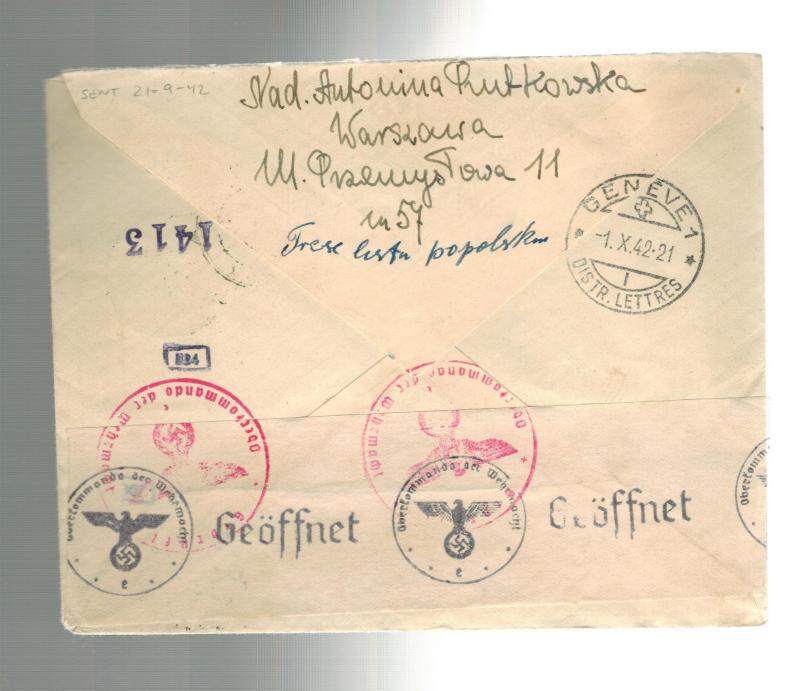 SENT 21-9-42
Nad. Antonina Rutkowska
Warszawa
Ul. Przemysłowa 11
m 57
Tresc listu popolsku
1413
GENÈVE 1
-1.X.42-21
I
DISTR. LETTRES
Oberkommando der Wehrmacht
Oberkommando der Wehrmacht
Oberkommando der Wehrmacht
e
Geöffnet
Oberkommando der Wehrmacht
e
Geöffnet